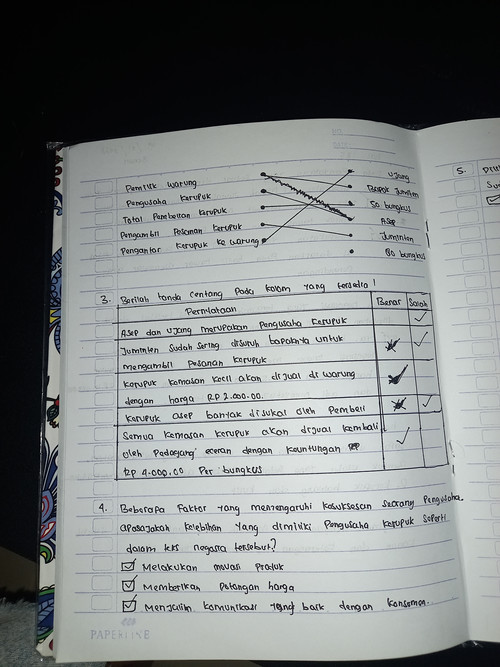 Pemilik warung
Ujang
Pengusaha kerupuk
Bapak Juminten
Total Pembelian kerupuk
50 bungkus
Pengambil Pesanan kerupuk
Asep
Pengantar kerupuk ke warung
Juminten
80 bungkus
3. Berilah tanda centang Pada kolom yang tersedia!
Pernyataan
Benar
Salah
Asep dan Ujang merupakan Pengusaha kerupuk
Juminten Sudah Sering disuruh bapaknya untuk
mengambil Pesanan kerupuk
Kerupuk kemasan kecil akan dijual di warung
dengan harga RP 2.000.00.
Kerupuk asep banyak disukai oleh Pembeli
Semua kemasan kerupuk akan dijual kembali
oleh Pedagang eceran dengan keuntungan
RP 4.000.00 Per bungkus
4. Beberapa Faktor yang memengaruhi kesuksesan Seorang Pengusaha.
apasajakah kelebihan yang dimiliki Pengusaha kerupuk Seperti
dalam teks negosia tersebut?
Melakukan inovasi Produk
Memberikan Potongan harga
Menjalin komunikasi yang baik dengan konsumen.
5.
PAPERLINE